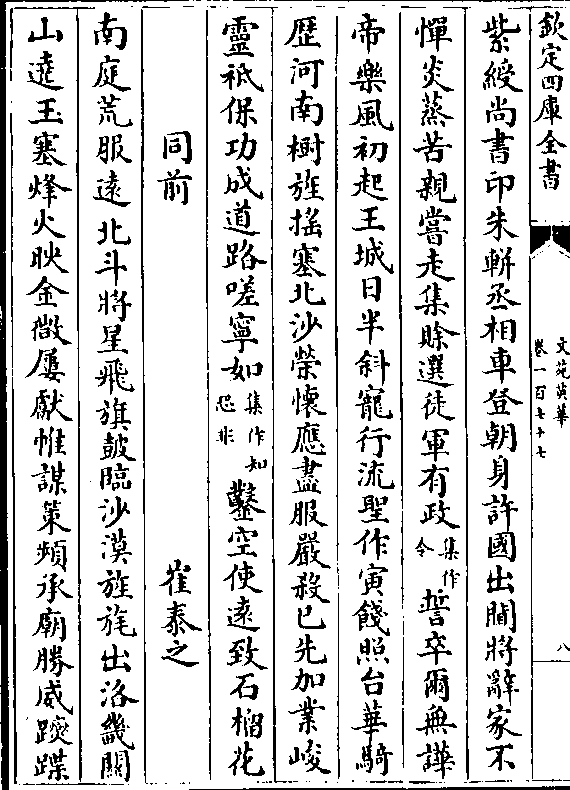 欽定四庫全書
文苑英華
卷一百七十七
八
紫綬尚書印朱軿丞相車登朝身許國出閫將辭家不
憚炎蒸苦親嘗走集賒選徒軍有政集作令誓卒爾無譁
帝樂風初起王城日半斜寵行流聖作寅餞照台華騎
歴河南樹旌揺塞北沙榮懐應盡服嚴殺已先加業峻
靈祗保功成道路嗟寧如集作知恐非鑿空使遠致石榴花
同前
崔泰之
南庭荒服遠北斗將星飛旗鼓臨沙漠旌旄出洛畿關
山遶玉塞烽火映金微屢獻帷謀策頻承廟勝威躞蹀